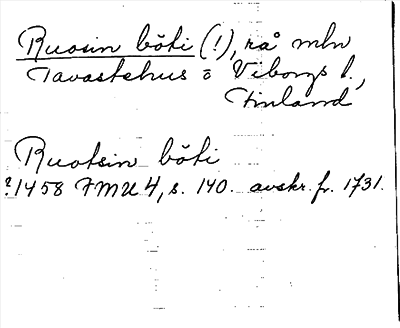 Ruosin böti (!), rå mln
Tavastehus o Viborgs l.,
Finland
Ruotsin böti
?1458 FMU 4, s. 140. avskr. fr. 1731.